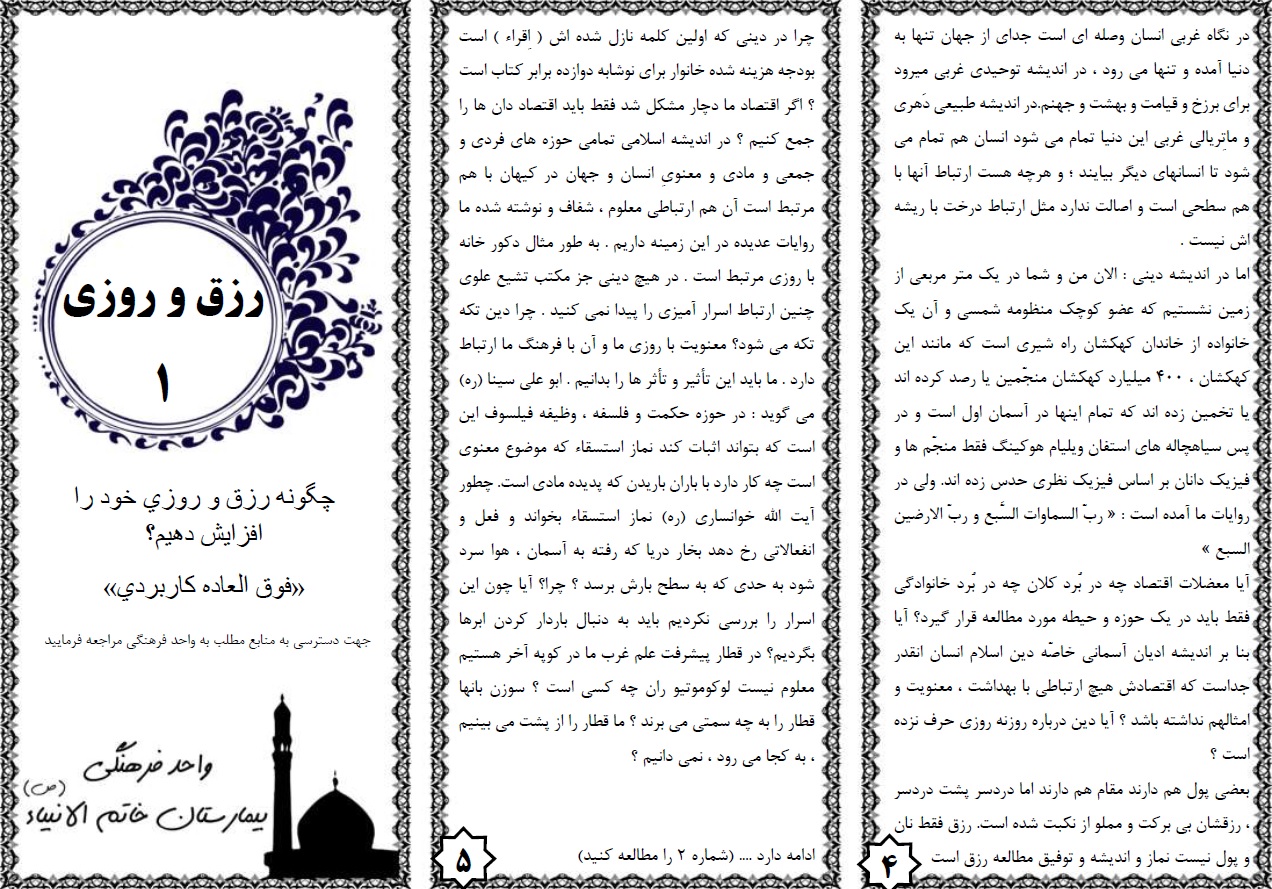 در نگاه غربی انسان وصله ای است جدای از جهان تنها به
دنیا آمده و تنها می رود ، در اندیشه توحیدی غربی میرود
برای برزخ و قیامت و بهشت و جهنم.در اندیشه طبیعی دَهری
و ماتِریالی غربی این دنیا تمام می شود انسان هم تمام می
شود تا انسانهای دیگر بیایند ؛ و هرچه هست ارتباط آنها با
هم سطحی است و اصالت ندارد مثل ارتباط درخت با ریشه
اش نیست .
اما در اندیشه دینی : الان من و شما در یک متر مربعی از
زمین نشستیم که عضو کوچک منظومه شمسی و آن یک
خانواده از خاندان کهکشان راه شیری است که مانند این
کهکشان ، ۴۰۰ میلیارد کهکشان منجّمین یا رصد کرده اند
یا تخمین زده اند که تمام اینها در آسمان اول است و در
پس سیاهچاله های استفان ویلیام هوکینگ فقط منجّم ها و
فیزیک دانان بر اساس فیزیک نظری حدس زده اند. ولی در
روایات ما آمده است : « ربّ السماوات السَّبع و ربّ الارضین
السبع »
آیا معضلات اقتصاد چه در بُرد کلان چه در بُرد خانوادگی
فقط باید در یک حوزه و حیطه مورد مطالعه قرار گیرد؟ آیا
بنا بر اندیشه ادیان آسمانی خاصّه دین اسلام انسان انقدر
جداست که اقتصادش هیچ ارتباطی با بهداشت ، معنویت و
امثالهم نداشته باشد ؟ آیا دین درباره روزنه روزی حرف نزده
است ؟
بعضی پول هم دارند مقام هم دارند اما دردسر پشت دردسر
، رزقشان بی برکت و مملو از نکبت شده است. رزق فقط نان
و پول نیست نماز و اندیشه و توفیق مطالعه رزق است
۴
چرا در دینی که اولین کلمه نازل شده اش ( اِقراء ) است
بودجه هزینه شده خانوار برای نوشابه دوازده برابر کتاب است
؟ اگر اقتصاد ما دچار مشکل شد فقط باید اقتصاد دان ها را
جمع کنیم ؟ در اندیشه اسلامی تمامی حوزه های فردی و
جمعی و مادی و معنویِ انسان و جهان در کیهان با هم
مرتبط است آن هم ارتباطی معلوم ، شفاف و نوشته شده ما
روایات عدیده در این زمینه داریم . به طور مثال دکور خانه
با روزی مرتبط است . در هیچ دینی جز مکتب تشیع علوی
چنین ارتباط اسرار آمیزی را پیدا نمی کنید . چرا دین تکه
تکه می شود؟ معنویت با روزی ما و آن با فرهنگ ما ارتباط
دارد . ما باید این تأثیر و تأثر ها را بدانیم . ابو علی سینا (ره)
می گوید : در حوزه حکمت و فلسفه ، وظیفه فیلسوف این
است که بتواند اثبات کند نماز استسقاء که موضوع معنوی
است چه کار دارد با باران باریدن که پدیده مادی است. چطور
آیت الله خوانساری (ره) نماز استسقاء بخواند و فعل و
انفعالاتی رخ دهد بخار دریا که رفته به آسمان ، هوا سرد
شود به حدی که به سطح بارش برسد ؟ چرا؟ آیا چون این
اسرار را بررسی نکردیم باید به دنبال باردار کردن ابرها
بگردیم؟ در قطار پیشرفت علم غرب ما در کوپه آخر هستیم
معلوم نیست لوکوموتیو ران چه کسی است ؟ سوزن بانها
قطار را به چه سمتی می برند ؟ ما قطار را از پشت می بینیم
، به کجا می رود ، نمی دانیم ؟
ادامه دارد .... (شماره ۲ را مطالعه کنید)
۵
رزق و روزی
۱
چگونه رزق و روزي خود را
افزایش دهیم؟
«فوق العاده کاربردي»
جهت دسترسی به منابع مطلب به واحد فرهنگی مراجعه فرمایید
واحد فرهنگی
بیمارستان خاتم الانبیاء (ص)